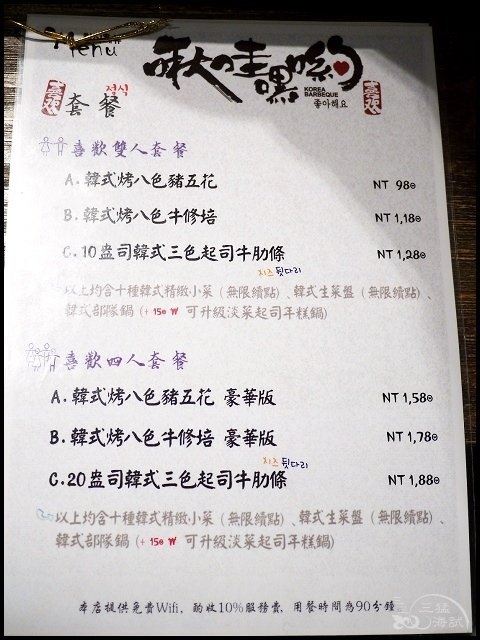 Menu
啾哇嘿喲
KOREA
BARBEQUE
좋아해요
喜歡
정식
套餐
喜歡
喜歡雙人套餐
A. 韓式烤八色豬五花 NT 980
B. 韓式烤八色牛修培 NT 1,180
C. 10盎司韓式三色起司牛肋條 NT 1,280
치즈 뒷다리
以上均含十種韓式精緻小菜（無限續點）、韓式生菜盤（無限續點）、
韓式部隊鍋 (+ 150 ₩ 可升級淡菜起司年糕鍋)
喜歡四人套餐
A. 韓式烤八色豬五花 豪華版 NT 1,580
B. 韓式烤八色牛修培 豪華版 NT 1,780
치즈 뒷다리
C. 20盎司韓式三色起司牛肋條 NT 1,880
以上均含十種韓式精緻小菜（無限續點）、韓式生菜盤（無限續點）、
韓式部隊鍋 (+ 150 ₩ 可升級淡菜起司年糕鍋)
本店提供免費Wifi，酌收10%服務費，用餐時間為90分鐘
三猛
海試